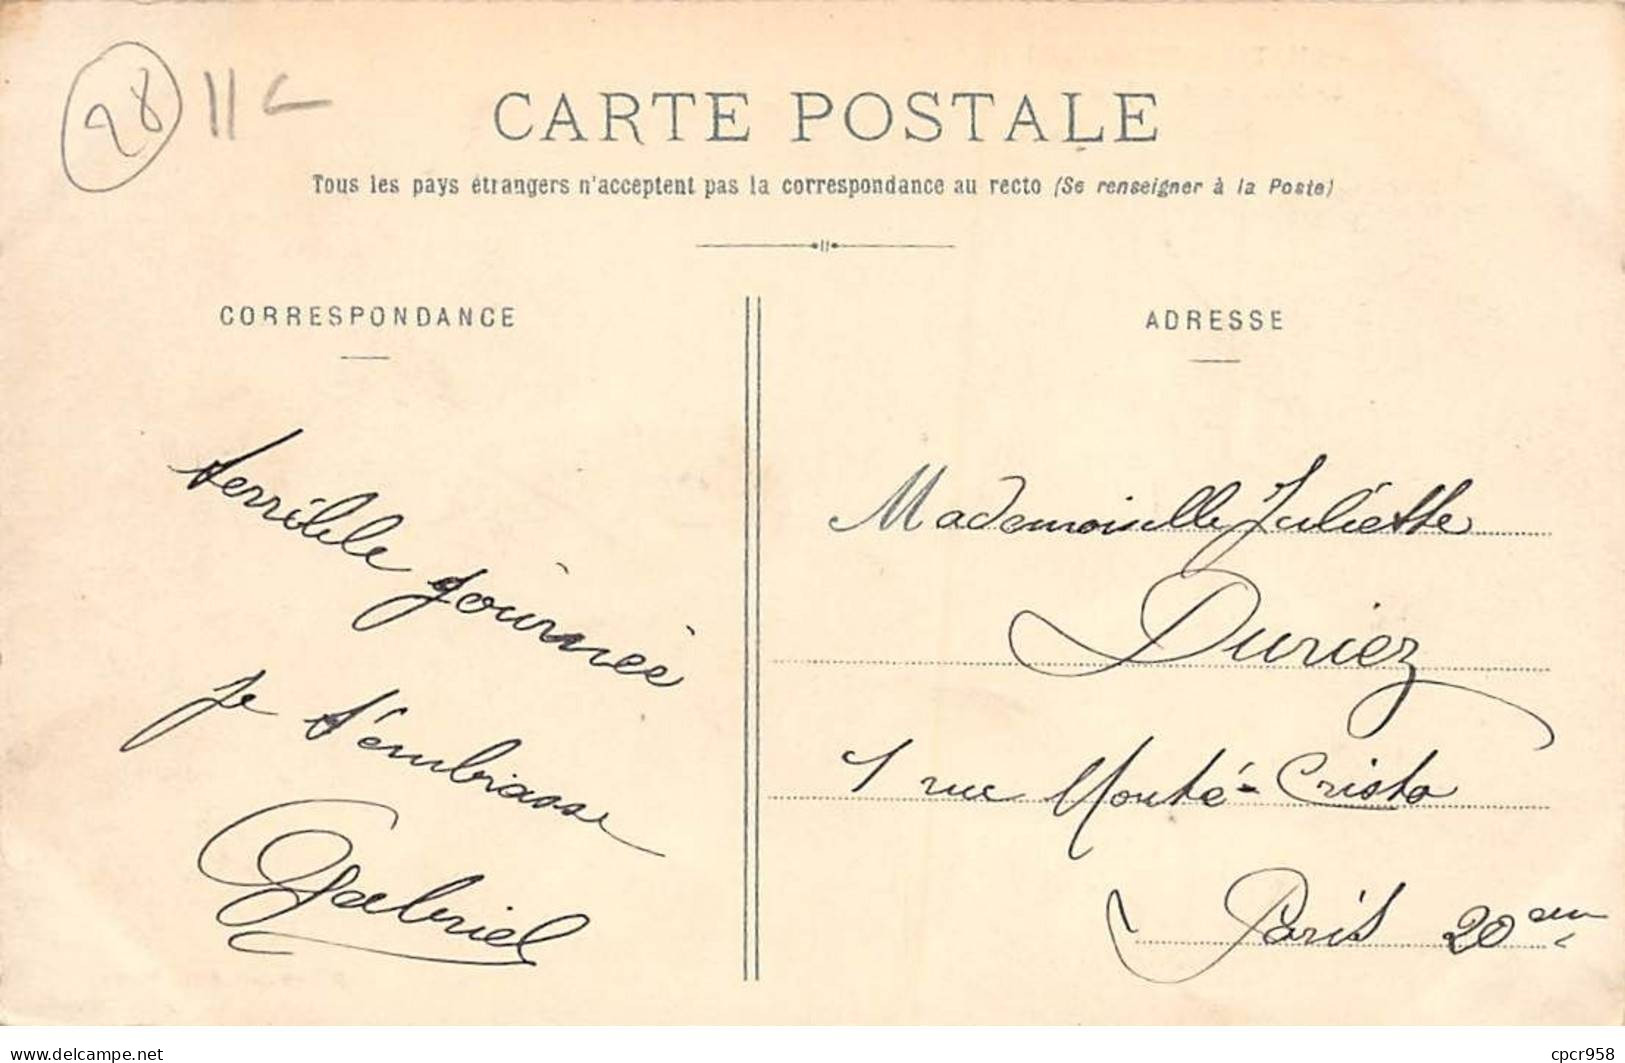 28 11 c
CARTE POSTALE
Tous les pays étrangers n'acceptent pas la correspondance au recto (Se renseigner à la Poste)
CORRESPONDANCE
terrible journée
je t'embrasse
Gabriel
ADRESSE
Mademoiselle Juliette
Duriez
1 rue Monté-Cristo
Paris 20em
www.delcampe.net
cpcr958